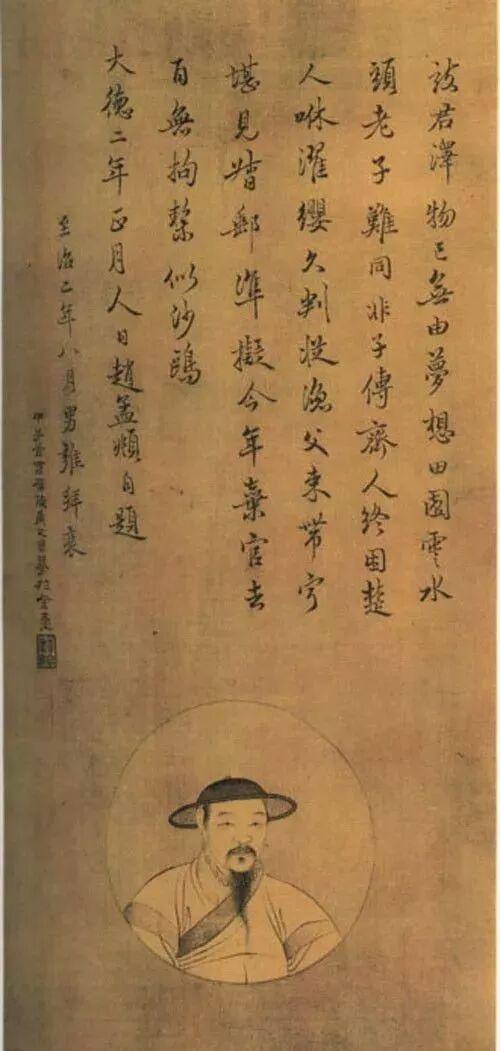 致君澤物已無由夢想田園雲水
頭老子難同非子傳齊人終困楚
人咻濯纓久判從漁父束帶寧
堪見督郵準擬今年棄官去
百無拘繫似沙鷗
大德二年正月人日趙孟頫自題
至治二年八月男雍拜裝